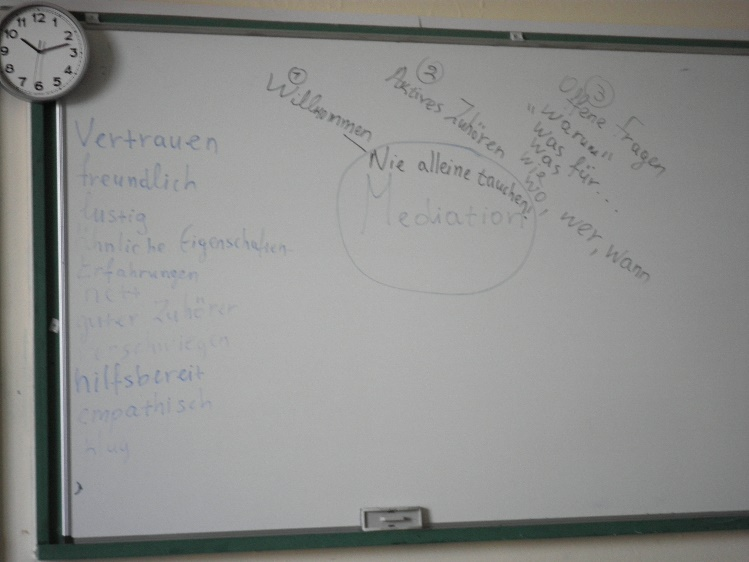 11 12 1
10 2
9 3
8 4
7 6 5
Vertrauen
freundlich
lustig
ähnliche Eigenschaften
Erfahrungen
nett
guter Zuhörer
verschwiegen
hilfsbereit
empathisch
klug
1
Willkommen
2
Aktives Zuhören
3
Offene Fragen
"Warum"
Was für...
Was
wie
wo, wer, wann
Nie alleine tauchen!
Mediation